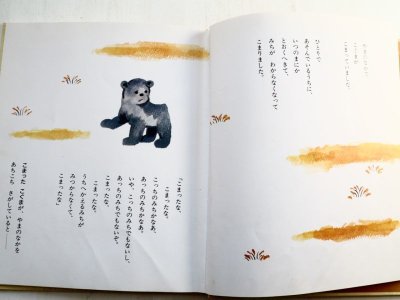 やまのなかで、
こぐまが
こまっていました。
ひとりで
あそんでいるうちに、
いつのまにか
とおくへきて、
みちが わからなくなって
こまりました。
「こまったな、
こまったな。
こっちのみちかなあ、
あっちのみちかなあ。
いや、こっちのみちでもないし、
あっちのみちでもないぞ。
こまったな、
こまったな。
うちへかえるみちが
みつからなくて、
こまったな」
こまった こぐまが、やまのなかを
あちこち さがしていると――